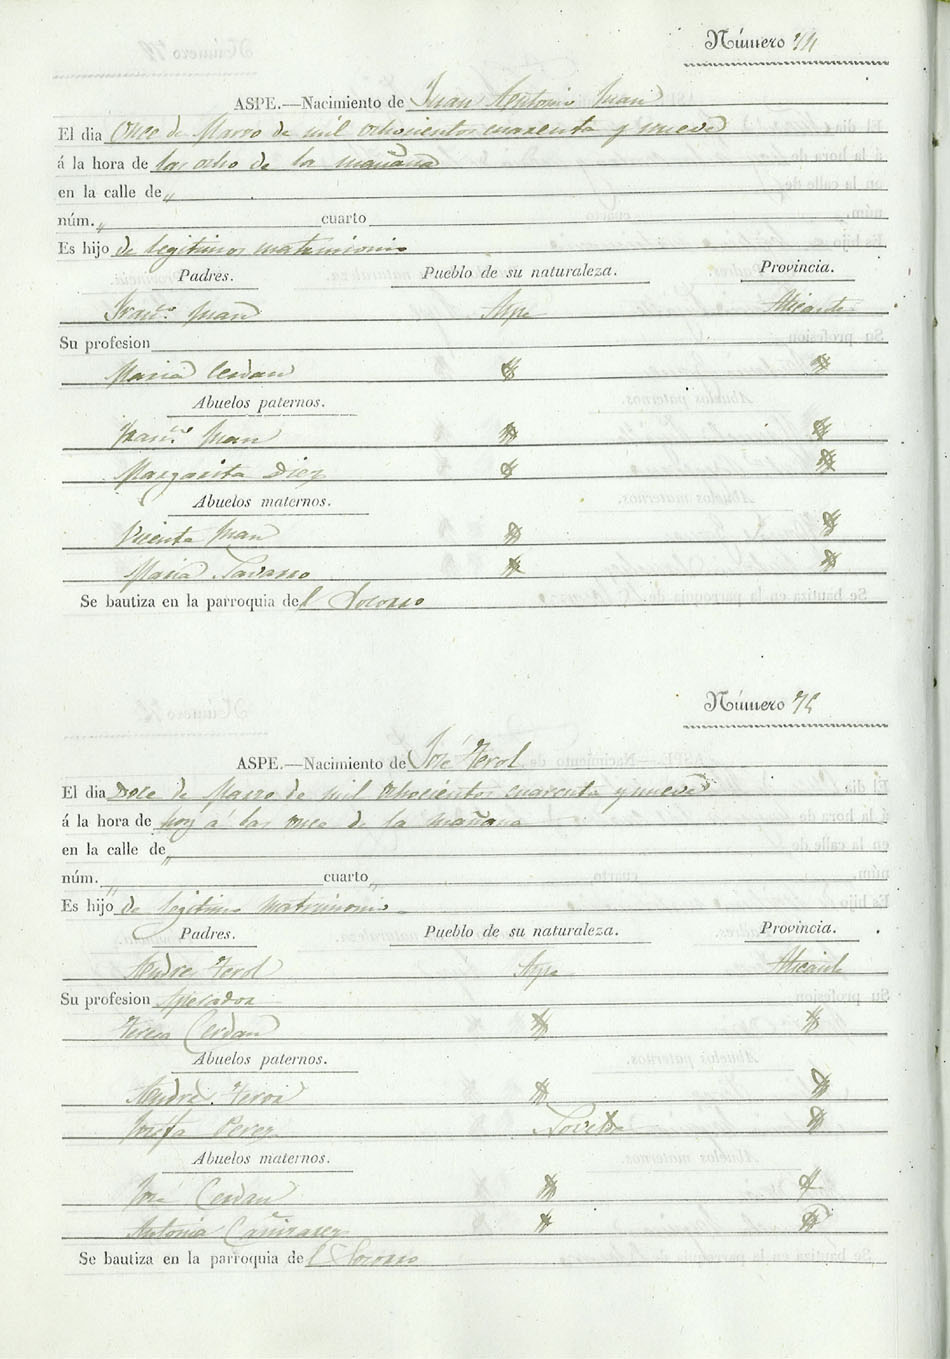 Número 74
ASPE.—Nacimiento de Juan Antonio Juan
El dia Once de Marzo de mil ochocientos cuarenta y nueve
á la hora de las ocho de la mañana
en la calle de "
núm. " cuarto
Es hijo de legitimos matrimonio
Padres. Pueblo de su naturaleza. Provincia.
Fran.co Juan Aspe Alicante
Su profesion
Maria Cerdan
Abuelos paternos.
Fran.co Juan
Margarita Diez
Abuelos maternos.
Vicente
Maria Navarro
Se bautiza en la parroquia del Socorro
Número 75
ASPE.—Nacimiento de José Terol
El dia Doce de Marzo de mil ochocientos cuarenta y nueve
á la hora de hoy á las once de la mañana
en la calle de "
núm. " cuarto "
Es hijo de legitimo matrimonio
Padres. Pueblo de su naturaleza. Provincia.
Andre Terol Aspe Alicante
Su profesion
Teresa Cerdan
Abuelos paternos.
Andre Terol
Josefa Perez Novelda
Abuelos maternos.
José Cerdan
Antonia Cañizares
Se bautiza en la parroquia del Socorro